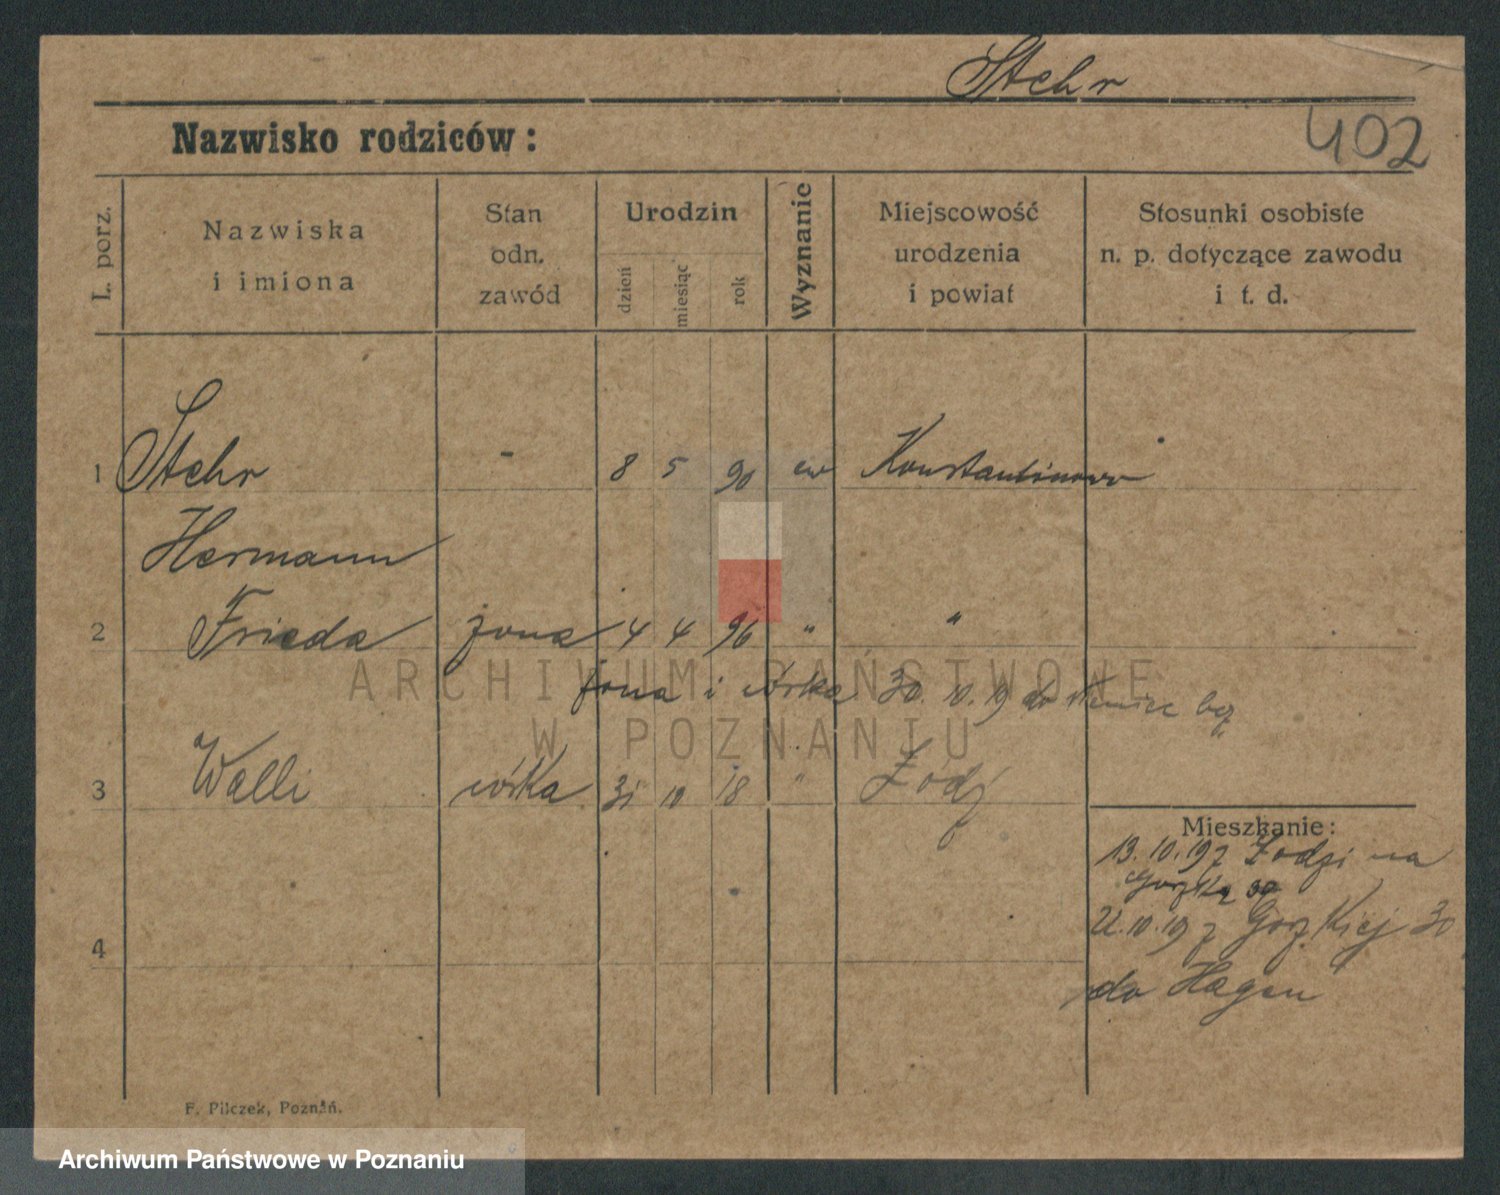 Stehr
402
Nazwisko rodziców:
L. porz.
Nazwiska
i imiona
Stan
odn.
zawód
Urodzin
dzień
miesiąc
rok
Wyznanie
Miejscowość
urodzenia
i powiat
Stosunki osobiste
n. p. dotyczące zawodu
i t. d.
1 Stehr - 8 5 90 ew Konstantinowo
Hermann
2 Frieda żona 4 4 96 " "
żona i córka 30. 10. 19 do
3 Walli córka 31 10 18 " Łódź
Mieszkanie:
13. 10. 19 z Łodzi na
30
22. 10. 19 z Górskiej 30
do Hagen
4
F. Pilczek, Poznań.
ARCHIWUM PAŃSTWOWE
W POZNANIU
Archiwum Państwowe w Poznaniu